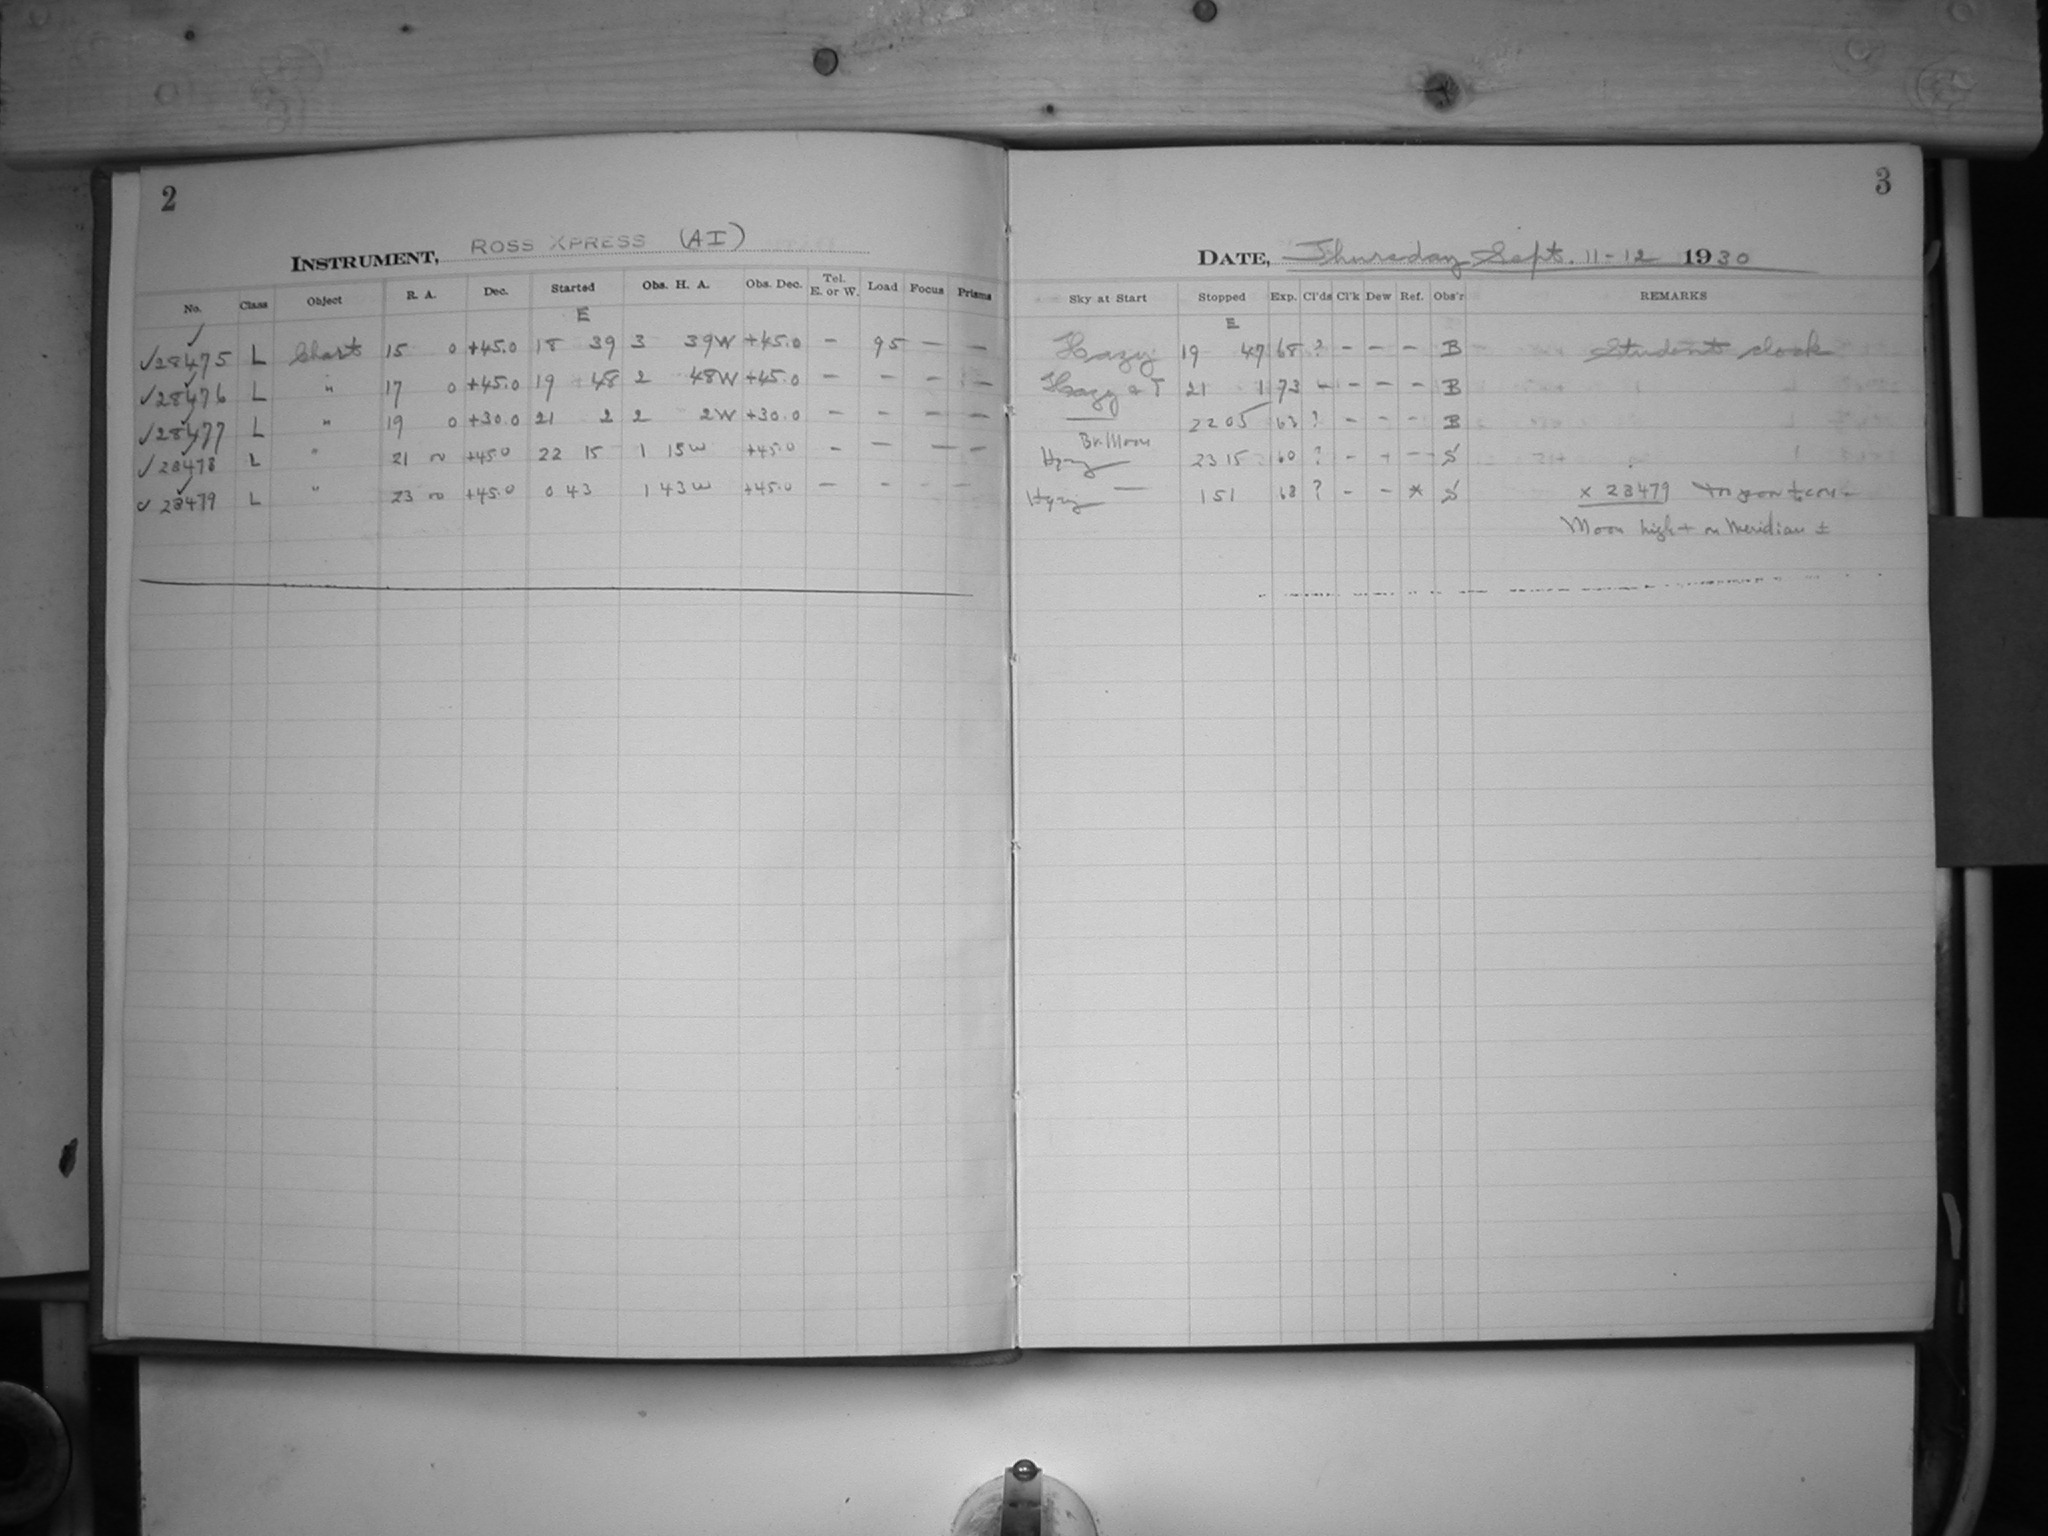 2
INSTRUMENT, ROSS XPRESS (AI)
No. Class Object R. A. Dec. Started Obs. H. A. Obs. Dec. Tel. E. or W. Load Focus Prisms
E
✓28475 L Chart 15 0 +45.0 18 39 3 39W +45.0 - 95 - -
✓28476 L " 17 0 +45.0 19 48 2 48W +45.0 - - - -
✓28477 L " 19 0 +30.0 21 2 2 2W +30.0 - - - -
✓28478 L " 21 +45.0 22 15 1 15W +45.0 - - - -
✓28479 L " 23 +45.0 0 43 1 43W +45.0 - - - -
3
DATE, Thursday Sept. 11-12 1930
Sky at Start Stopped Exp. Cl'ds Cl'k Dew Ref. Obs'r REMARKS
E
Hazy 19 47 68 ? - - - B Student clock
Hazy & T 21 1 73 - - - - B
22 05 63 ? - - - B
Br. Moon
Hazy 23 15 60 ? - - - S
Hazy 1 51 68 ? - - * S × 28479
Moon high + on Meridian ±